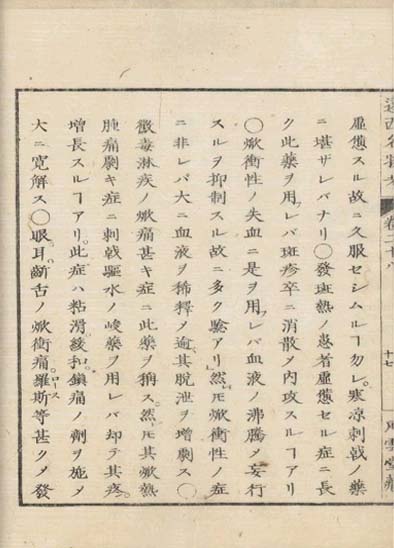 虚憊スル故ニ久服セシムルヿ勿レ。寒涼刺戟ノ藥
ニ堪ザレバナリ〇發斑熱ノ患者虚憊セル症ニ長
ク此藥ヲ用フレバ斑疹卒ニ消散メ内攻スルヿアリ
〇焮衝性ノ失血ニ是ヲ用フレバ血液ノ沸騰メ妄行
スルヲ抑制スル故ニ多ク驗アリ然レ𪜈焮衝性ノ症
ニ非レバ大ニ血液ヲ稀釋メ逾其脱泄ヲ增劇ス〇
黴毒淋疾ノ焮痛甚キ症ニ此藥ヲ稱ス。然レ𪜈其焮熱
腫痛劇キ症ニ刺戟驅水ノ峻藥ヲ用レバ却テ其疼
增長スルヿアリ。此症ハ粘滑緩和。鎮痛ノ劑ヲ施メ
大ニ寛解ス〇眼。耳。齗舌ノ焮衝痛。羅斯等甚クメ發
卷二十八
十七